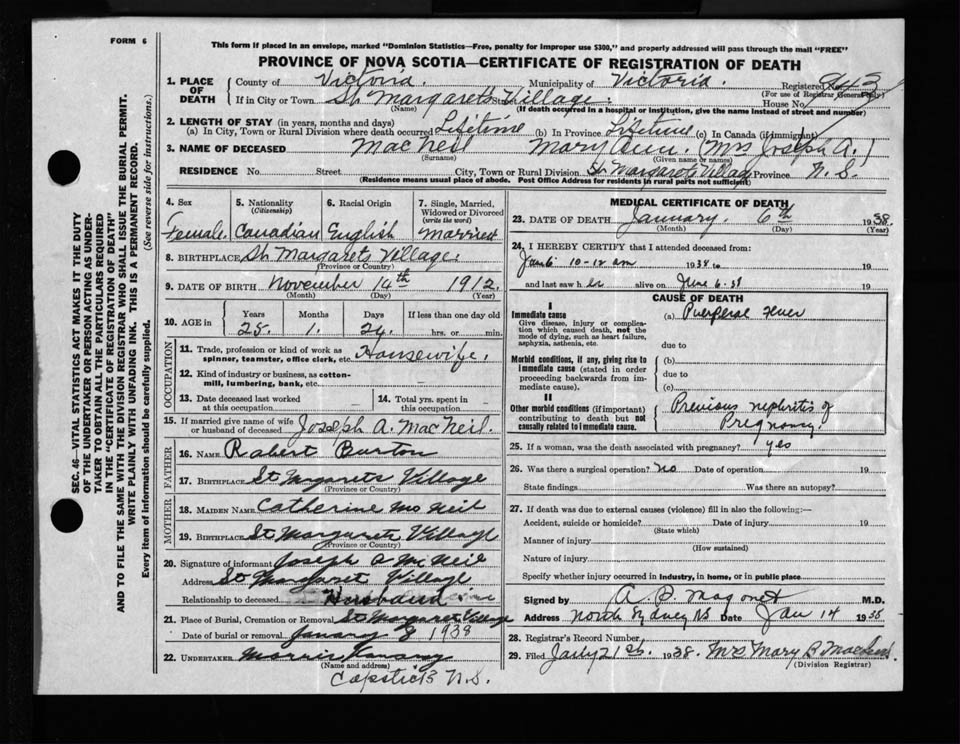 FORM 6
This form if placed in an envelope, marked "Dominion Statistics—Free, penalty for improper use $300," and properly addressed will pass through the mail "FREE"
PROVINCE OF NOVA SCOTIA—CERTIFICATE OF REGISTRATION OF DEATH
1. PLACE OF DEATH County of Victoria. Municipality of Victoria. Registered No.
(For use of Registrar General only)
If in City or Town St. Margarets Village. Street House No.
(If death occurred in a hospital or institution, give the name instead of street and number)
2. LENGTH OF STAY (in years, months and days)
(a) In City, Town or Rural Division where death occurred Lifetime (b) In Province Lifetime (c) In Canada (if immigrant)
3. NAME OF DECEASED Mac Neil Mary Ann. (Mrs Joseph A.)
(Surname) (Given name or names)
RESIDENCE No. Street City, Town or Rural Division St. Margarets Village Province N. S.
(Residence means usual place of abode. Post Office Address for residents in rural parts not sufficient)
4. Sex Female.
5. Nationality (Citizenship) Canadian
6. Racial Origin English
7. Single, Married, Widowed or Divorced (write the word) Married
8. BIRTHPLACE St. Margarets Village.
(Province or Country)
9. DATE OF BIRTH November 14th 1912.
(Month) (Day) (Year)
10. AGE in Years Months Days If less than one day old
25. 1. 24. hrs. or min.
OCCUPATION
11. Trade, profession or kind of work as spinner, teamster, office clerk, etc. Housewife.
12. Kind of industry or business, as cotton-mill, lumbering, bank, etc. –
13. Date deceased last worked at this occupation –
14. Total yrs. spent in this occupation –
15. If married give name of wife or husband of deceased Joseph A. MacNeil.
FATHER
16. NAME Robert Burton
17. BIRTHPLACE St Margarets Village
(Province or Country)
MOTHER
18. MAIDEN NAME Catherine Mc Neil
19. BIRTHPLACE St Margarets Village
(Province or Country)
20. Signature of informant Joseph A McNeil
Address St Margaret Village
Relationship to deceased Husband
21. Place of Burial, Cremation or Removal St Margaret Village
Date of burial or removal January 8 1938
22. UNDERTAKER Morris
(Name and address)
Capstick N.S.
MEDICAL CERTIFICATE OF DEATH
23. DATE OF DEATH January. 6th 1938.
(Month) (Day) (Year)
24. I HEREBY CERTIFY that I attended deceased from:
Jan 6 10-12 am 1938 to 19
and last saw her alive on 19
CAUSE OF DEATH
I
Immediate cause
Give disease, injury or complication which caused death, not the mode of dying, such as heart failure, asphyxia, asthenia, etc.
(a) Puerperal Fever
due to
Morbid conditions, if any, giving rise to immediate cause (stated in order proceeding backwards from immediate cause).
(b)
due to
(c)
II
Other morbid conditions (if important) contributing to death but not causally related to immediate cause.
Previous nephritis of
Pregnancy.
25. If a woman, was the death associated with pregnancy? yes
26. Was there a surgical operation? no Date of operation 19
State findings Was there an autopsy?
27. If death was due to external causes (violence) fill in also the following:—
Accident, suicide or homicide? Date of injury 19
(State which)
Manner of injury
(How sustained)
Nature of injury
Specify whether injury occurred in industry, in home, or in public place
Signed by M.D.
Address North Sydney NS Date Jan 14 1938
28. Registrar's Record Number
29. Filed 21st. 1938. Mrs Mary B
(Division Registrar)
SEC. 46—VITAL STATISTICS ACT MAKES IT THE DUTY
OF THE UNDERTAKER OR PERSON ACTING AS UNDER-
TAKER TO OBTAIN ALL THE PARTICULARS REQUIRED
IN THE "CERTIFICATE OF REGISTRATION OF DEATH"
AND TO FILE THE SAME WITH THE DIVISION REGISTRAR WHO SHALL ISSUE THE BURIAL PERMIT.
WRITE PLAINLY WITH UNFADING INK. THIS IS A PERMANENT RECORD.
Every item of information should be carefully supplied. (See reverse side for instructions.)